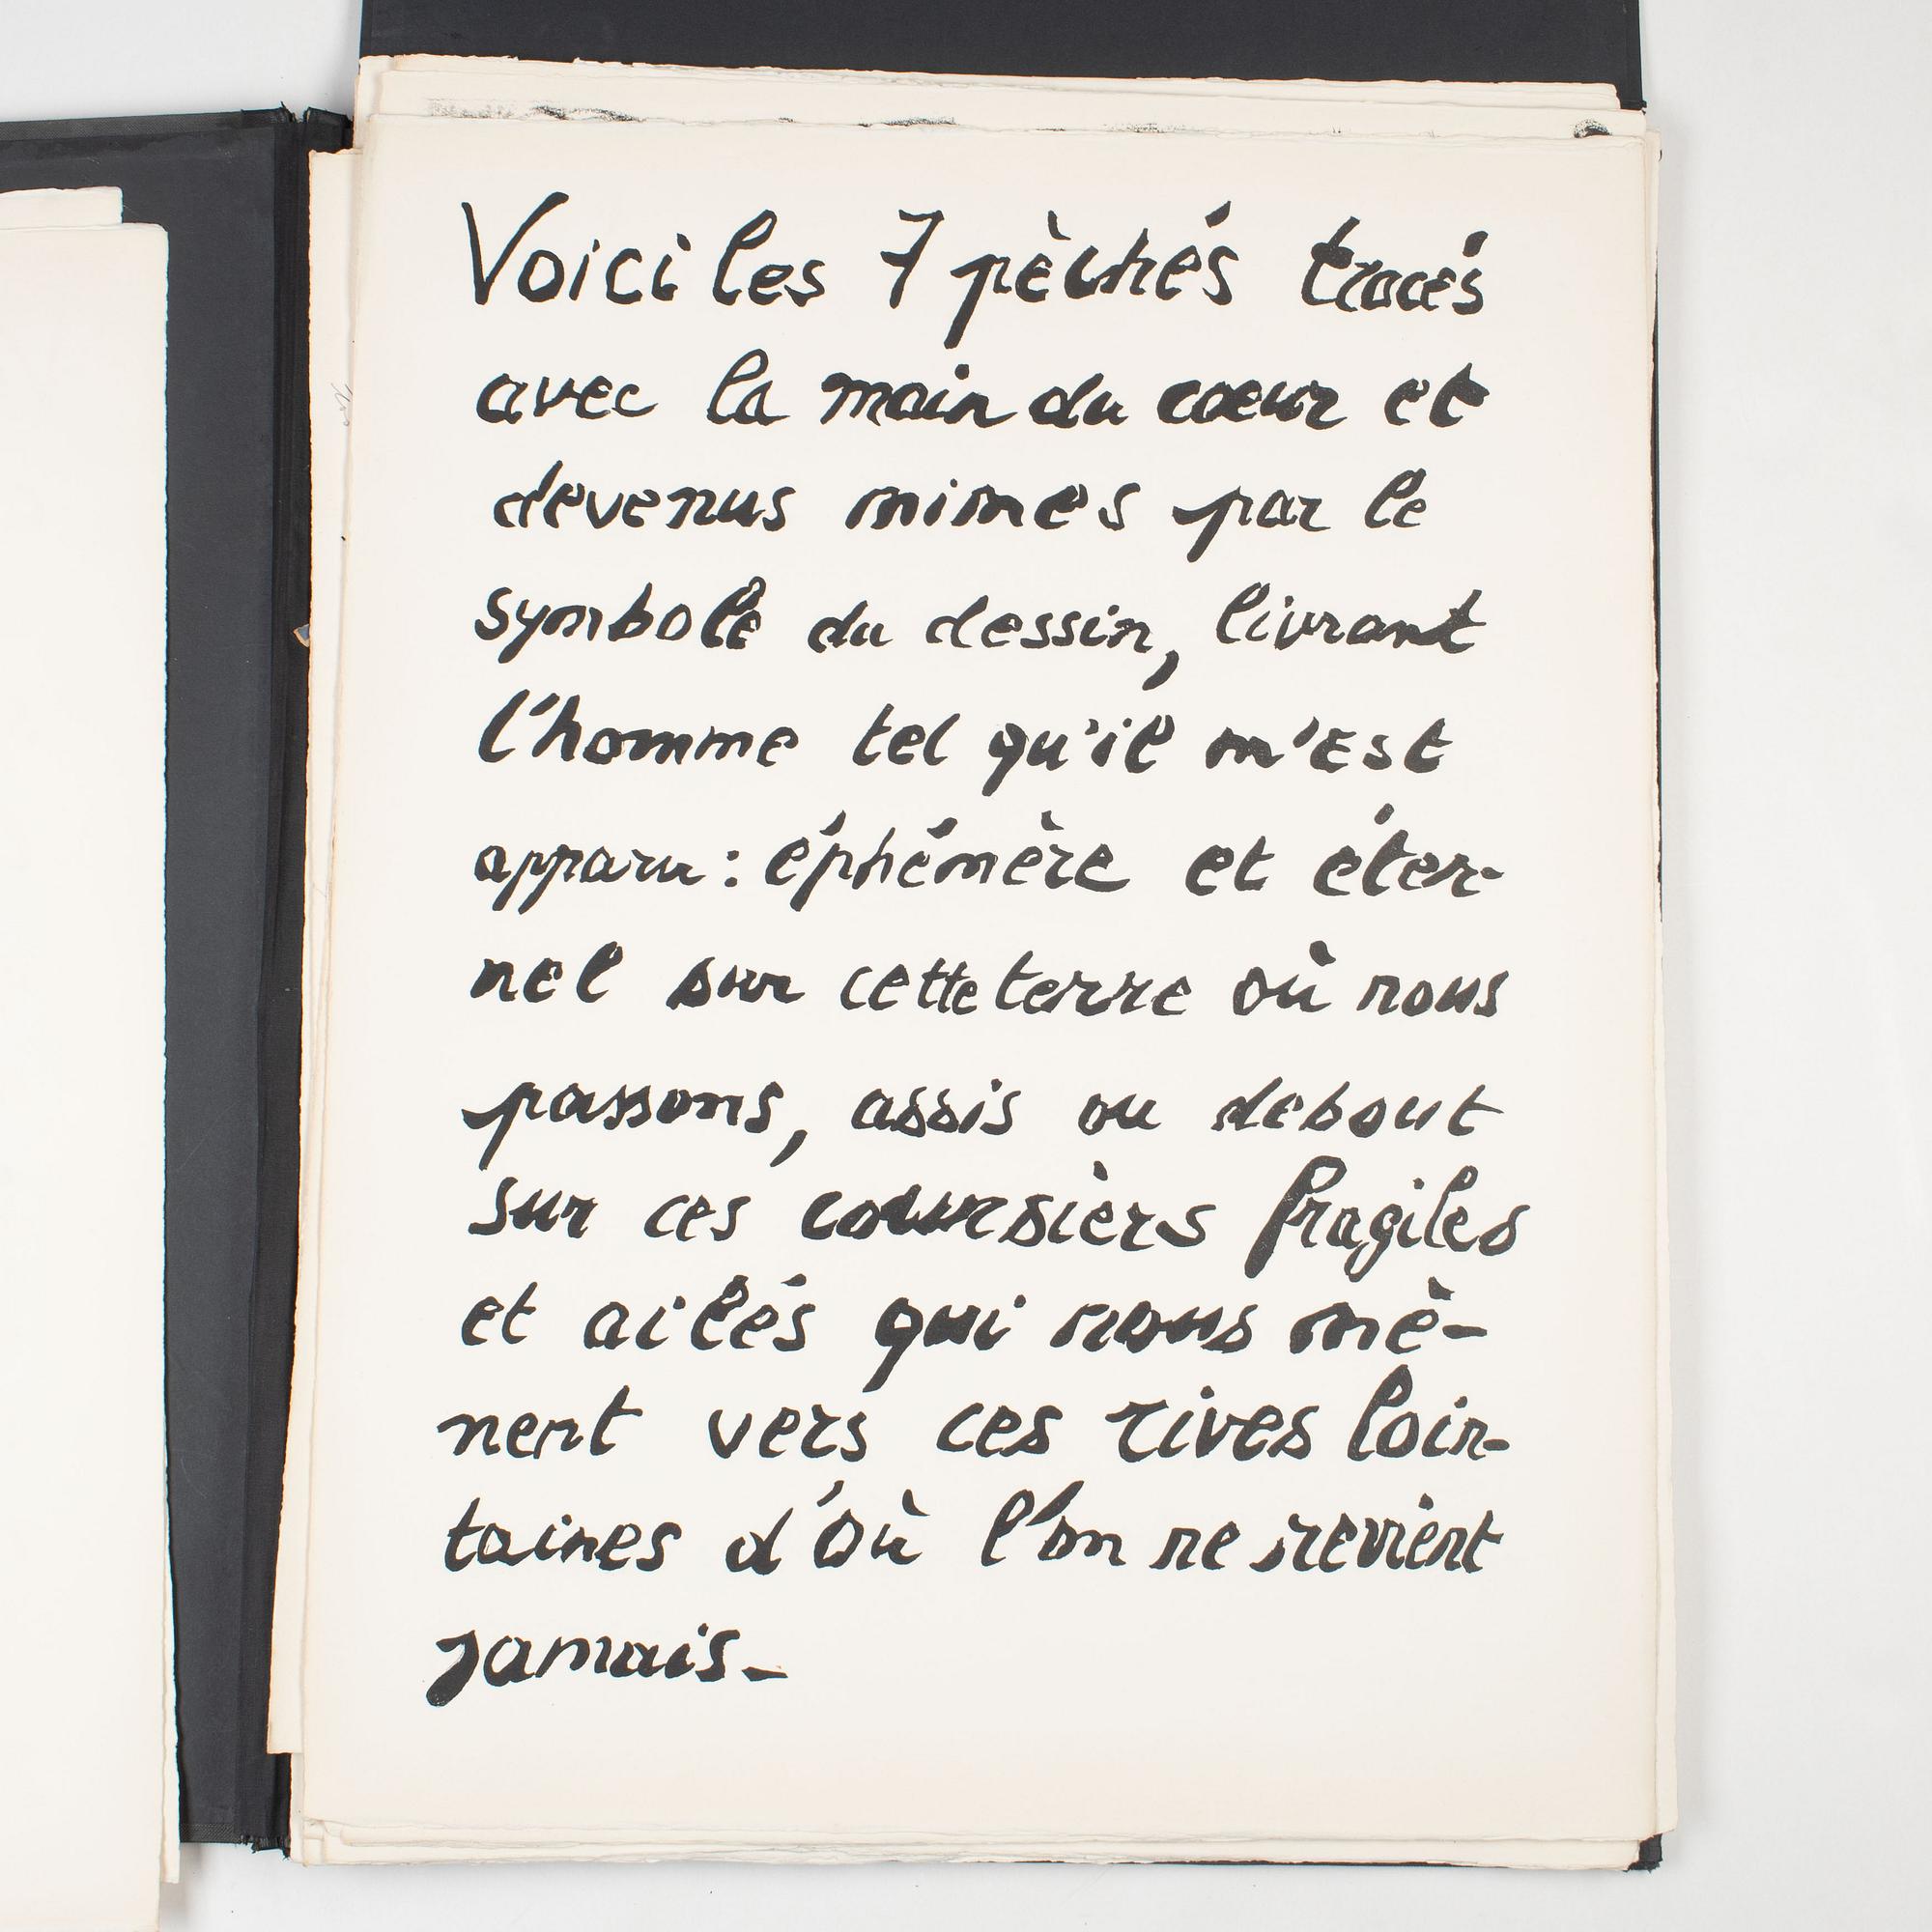 Voici les 7 pèchés tracés
avec la main du cœur et
devenus mimes par le
symbole du dessin, livrant
l'homme tel qu'il m'est
apparu : éphémère et éter-
nel sur cette terre où nous
passons, assis ou debout
sur ces coursièrs fragiles
et ailés qui nous mè-
nent vers ces rives loin-
taines d'où l'on ne revient
jamais_